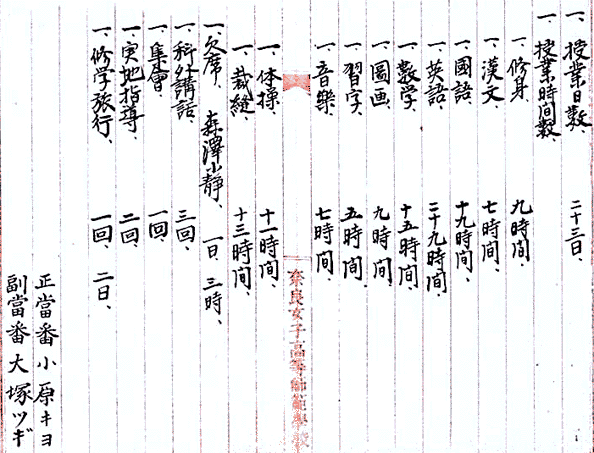 一、授業日数、 二十三日、
一、授業時間数、
一、修身、 九時間、
一、漢文、 七時間、
一、國語、 十九時間、
一、英語、 二十九時間、
一、数学、 十五時間、
一、圖画、 九時間、
一、習字、 五時間、
一、音樂、 七時間、
奈良女子高等師範學校
一、体操、 十一時間、
一、裁縫、 十三時間、
一、欠席、 森澤小静、 一日、三時、
一、科外講話、 三回、
一、集會、 一回、
一、実地指導、 二回、
一、修学旅行、 一回、二日、
正當番小原キヨ
副當番大塚ツギ